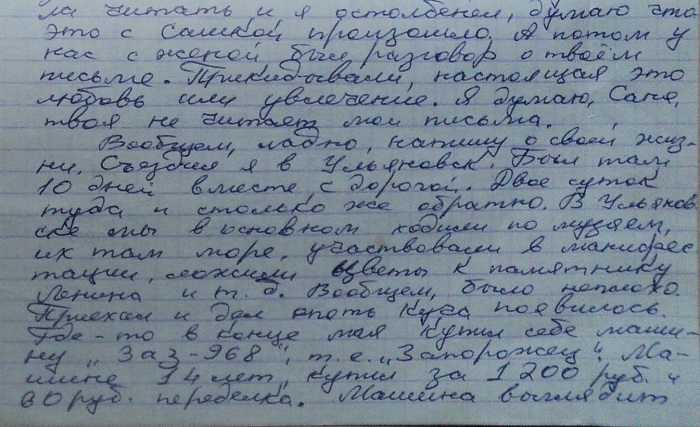 ла читать и я остолбенел, думаю что
это с Сашкой произошло. А потом у
нас с женой был разговор о твоём
письме. Прикидывали, настоящая это
любовь или увлечение. Я думаю, Саня,
твоя не читает мои письма.
Вообщем, ладно, напишу о своей жиз-
ни. Съездил я в Ульяновск. Был там
10 дней вместе с дорогой. Двое суток
туда и столько же обратно. В Ульянов
ске мы в основном ходили по музеям,
их там море, участвовали в манифес
тации, ложили цветы к памятнику
Ленина и т. д. Вообщем, было неплохо.
Приехал и дел опять куча появилось.
Где-то в конце мая купил себе маши-
ну „Заз-968", т.е. „Запорожец". Ма-
шине 14 лет, купил за 1200 руб. и
60 руб. переделка. Машина выглядит